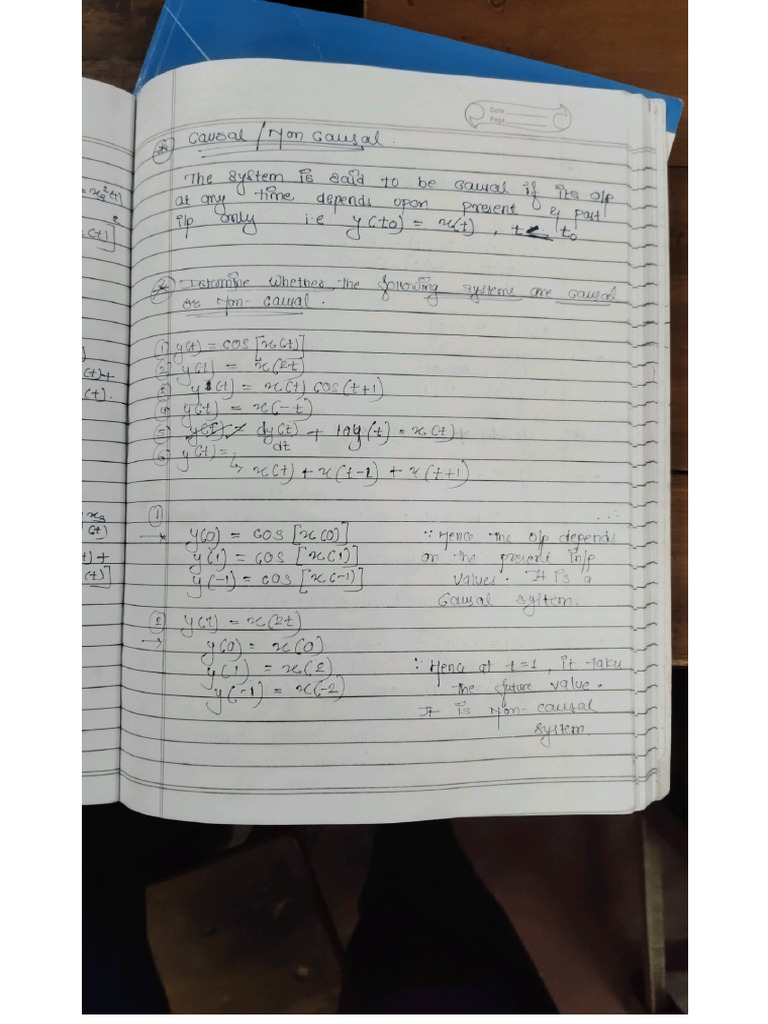 = x₂²(t)
(t)]²
(t)+
(t).
x₂
(t)
t)+
(t)]
Date
Page
* Causal / Non Causal.
The system is said to be causal if its o/p
at any time depends upon present & past
i/p only i.e y(to) = x(t), t ≤ to
* Determine whether the following systems are causal
or Non-causal.
① y(t) = cos[x(t)]
② y(t) = x(2t)
③ y(t) = x(t) cos(t+1)
④ y(t) = x(-t)
⑤ dy(t)/dt + log(t) = x(t)
⑥ y(t) =
↳ x(t) + x(t-1) + x(t+1)
①
→ y(0) = cos[x(0)] ∵ Hence the o/p depends
y(1) = cos[x(1)] on the present in/p
y(-1) = cos[x(-1)] values. It is a
Causal system.
② y(t) = x(2t)
→ y(0) = x(0)
y(1) = x(2) ∵ Hence at t=1, it take
y(-1) = x(-2) the future value.
It is Non-causal
system